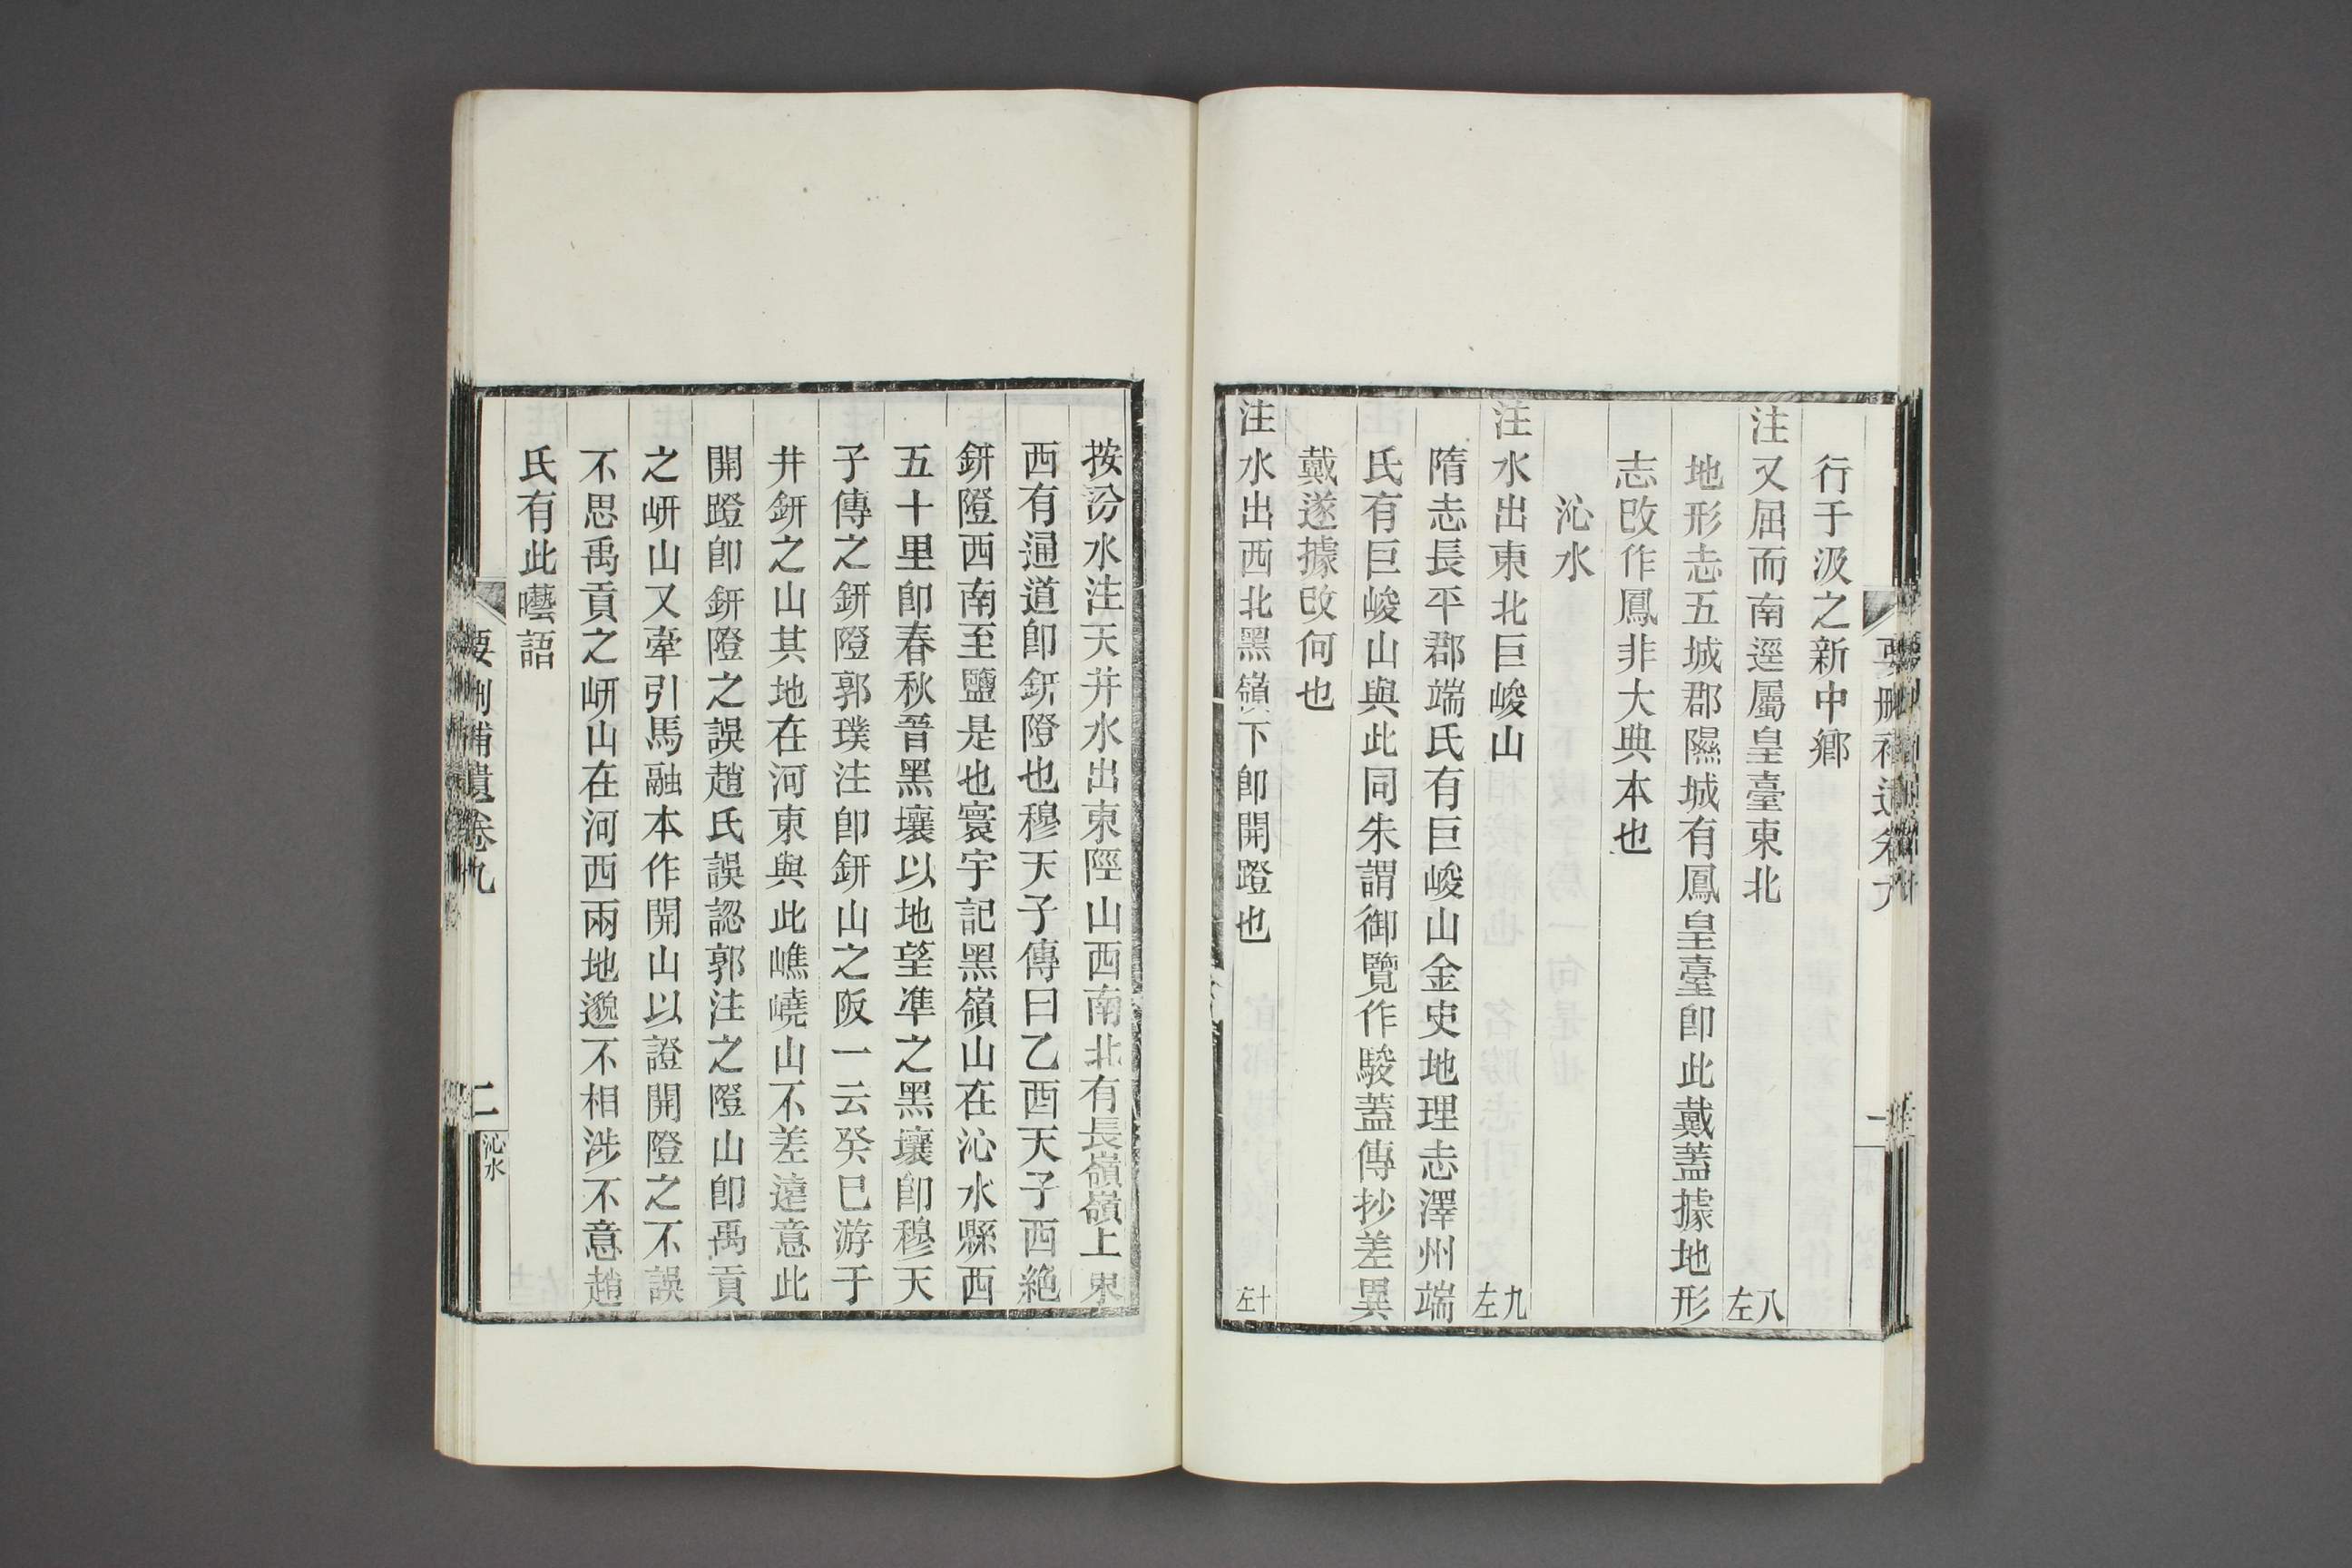 行于汲之新中鄉
注又屈而南逕屬皇臺東北 八左
地形志五城郡隰城有鳳皇臺卽此戴蓋據地形
志改作鳳非大典本也
沁水
注水出東北巨峻山 九左
隋志長平郡端氏有巨峻山金史地理志澤州端
氏有巨峻山與此同朱謂御覽作駿蓋傳抄差異
戴遂據改何也
注水出西北黑嶺下卽開蹬也 十左
按汾水注天井水出東陘山西南北有長嶺嶺上東
西有通道卽鈃隥也穆天子傳曰乙酉天子西絶
鈃隥西南至鹽是也寰宇記黑嶺山在沁水縣西
五十里卽春秋晉黑壤以地望準之黑壤卽穆天
子傳之鈃隥郭璞注卽鈃山之阪一云癸巳游于
井鈃之山其地在河東與此嶕嶢山不差遠意此
開蹬卽鈃隥之誤趙氏誤認郭注之隥山卽禹貢
之岍山又牽引馬融本作開山以證開隥之不誤
不思禹貢之岍山在河西兩地邈不相涉不意趙
氏有此囈語
要刪補遺卷九
二
沁水